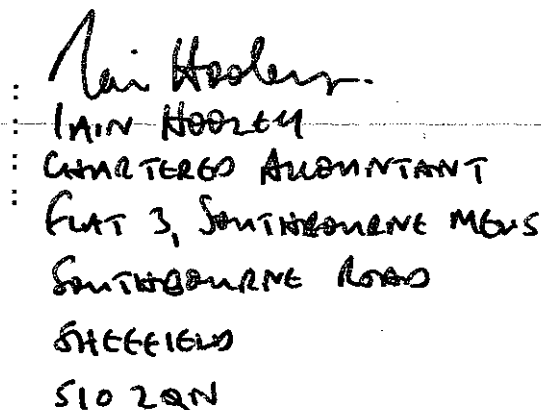 : Iain Hooley.
: IAIN HOOLEY
: CHARTERED ACCOUNTANT
: FLAT 3, SOUTHBOURNE MEWS
SOUTHBOURNE ROAD
SHEFFIELD
S10 2QN